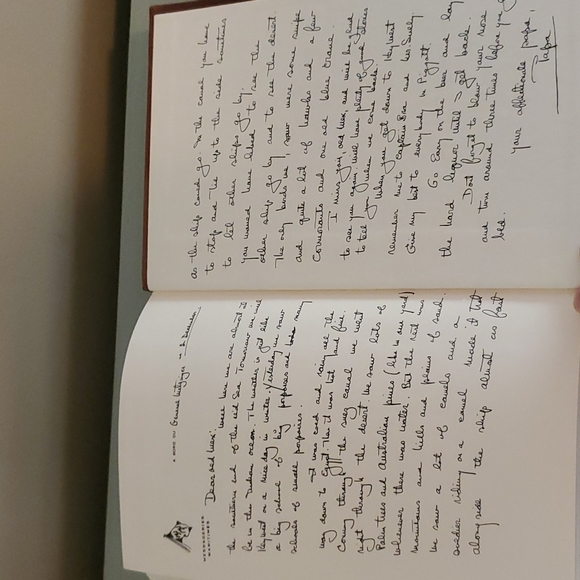 A BORD DU General Metzinger
Dear old Mex:
Well here we are almost at
the southern end of the Red Sea. Tomorrow we will
be in the Indian Ocean. The weather is just like
Key West on a nice day in winter. Yesterday we saw
a big school of big porpoises and many
schools of small porpoises.
It was cold and rainy all the
way down to Egypt. Then it was hot and fine.
Coming through the Suez Canal we went
right through the desert. We saw lots of
Palm trees and Australian pines (like in our yard)
whenever there was water. But the rest was
mountains and hills and plains of sand.
We saw a lot of camels and a
soldier riding on a camel made it trot
alongside the ship almost as fast
as the ship could go. In the canal you have
to stop and tie up to the side sometimes
to let other ships go by.
You would have liked to see the
other ships go by and to see the desert.
The only birds we saw were some snipe
and quite a lot of hawks and a few
Cormorants and one old blue crane.
I miss you, old Mex, and will be glad
to see you again. Will have plenty of good stories
to tell you when we come back.
When you get down to Key West
remember me to Captain Bra and Mr. Sully.
Give my best to everybody in Piggott.
Go Easy on the beer and lay
the hard liquor until I get back.
Dont forget to blow your nose
and turn around three times before you go
bed.
Your affectionate papa,
Papa